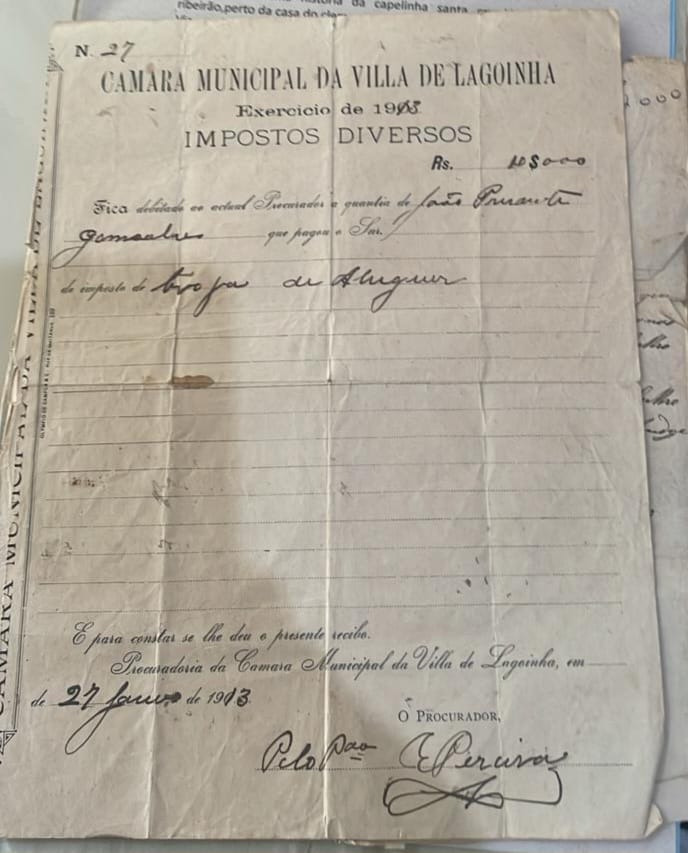 ribeirão,perto da casa do
da capelinha santa
N. 27
CAMARA MUNICIPAL DA VILLA DE LAGOINHA
Exercicio de 1913
IMPOSTOS DIVERSOS
Rs. 10$000
Fica debitado ao actual Procurador a quantia de João
que pagou o Snr.
do imposto de tropa de Aluguer
E para constar se lhe deu o presente recibo.
Procuradoria da Camara Municipal da Villa de Lagoinha, em
de 27 Janro de 1913
O PROCURADOR,
Pelo Pdor C Pereira
CAMARA MUNICIPAL DA VILLA DE LAGOINHA